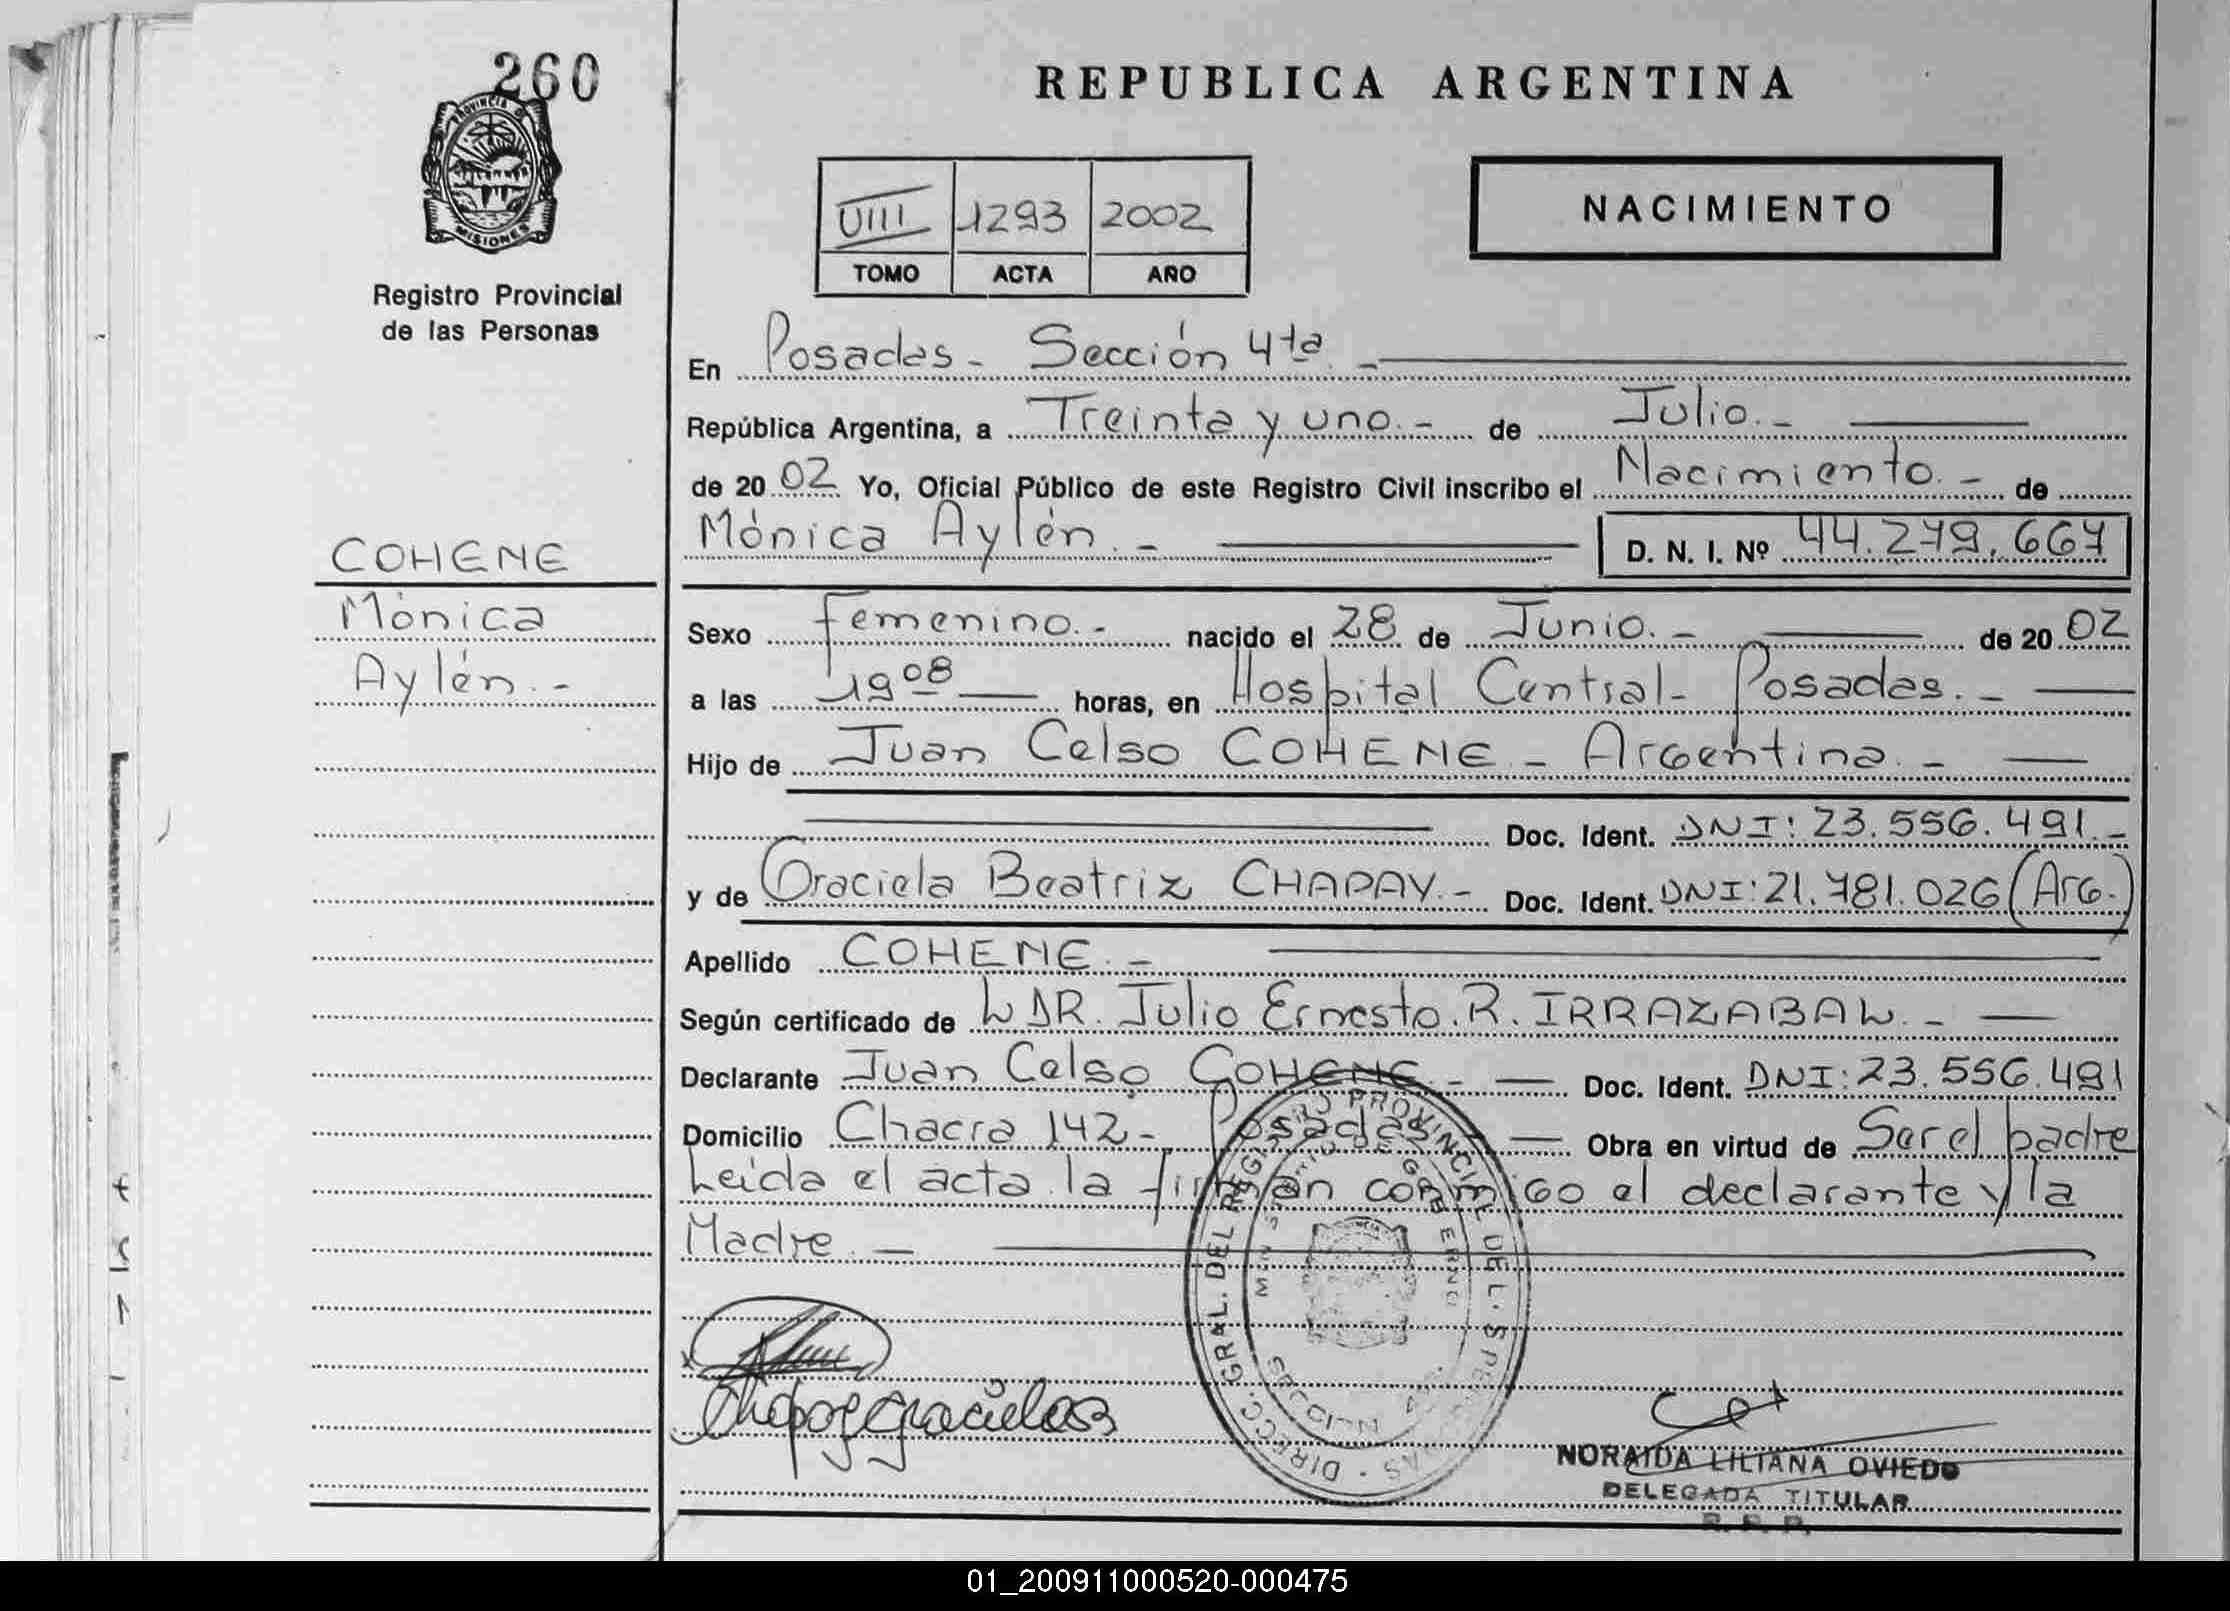 260
PROVINCIA D
MISIONES
Registro Provincial
de las Personas
COHENE
Mónica
Aylén.-
REPUBLICA ARGENTINA
NACIMIENTO
VIII 1293 2002
TOMO ACTA AÑO
En Posadas - Sección 4ta. -
República Argentina, a Treinta y uno.- de Julio.-
de 2002 Yo, Oficial Público de este Registro Civil inscribo el Nacimiento.- de
Mónica Aylén.- D. N. I. Nº 44.279.667
Sexo Femenino.- nacido el 28 de Junio.- de 2002
a las 19 08 horas, en Hospital Central- Posadas.-
Hijo de Juan Celso COHENE - Argentina.-
Doc. Ident. DNI: 23.556.491.-
y de Graciela Beatriz CHAPAY.- Doc. Ident. DNI: 21.781.026 (Arg.)
Apellido COHENE.-
Según certificado de L DR. Julio Ernesto.R. IRRAZABAL.-
Declarante Juan Celso COHENE.- Doc. Ident. DNI: 23.556.491
Domicilio Chacra 142- Posadas Obra en virtud de Ser el padre
Leida el acta la firman conmigo el declarante y la
Madre.-
DIRECC. GRAL. DEL REGISTRO PROVINCIAL DE L. S PE AS
NORAIDA LILIANA OVIEDO
DELEGADA TITULAR
R. P. P.
01_200911000520-000475